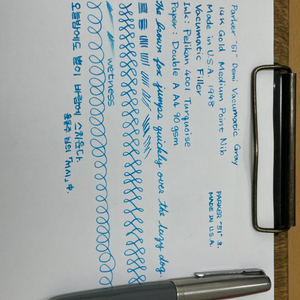 Parker '51' Demi Vacumatic Gray
14K Gold Medium Point Nib
Made in U.S.A. 1948
Vacumatic Filler
Ink: Pelikan 4001 Turquoise
Paper: Double A A4 90gsm
the brown fox jumps quickly over the lazy dog.
wetness
오늘밤에도 별이 바람에 스치운다.
윤동주 님의 「서시」 中.
PARKER "51"
MADE IN U.S.A.